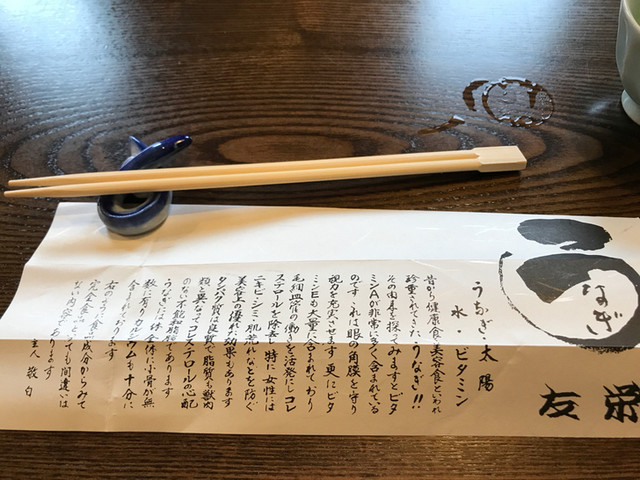 うなぎ
友栄
うなぎ・太陽
水・ビタミン
昔から健康食・美容食といわれ
珍重されてきたうなぎ!!
その由来を探ってみますとビタ
ミンAが非常に多く含まれている
のです これは眼の角膜を守り
視力を充実させます 更にビタ
ミンEも大量に含まれており
毛細血管の働きを活発にしコレ
ステロールを除去し特に女性には
ニキビ・シミ・肌荒れなどを防ぐ
美容上の優れた効果もあります
タンパク質は良質で脂質も獣肉
類と異なってコレステロールの心配
のない不飽和脂肪であります
うなぎには体全体に小骨が無
数に有りカルシウムも十分に
含まれております
右のような食品成分からみて
完全食品といっても間違いは
ない内容であります
主人 敬白